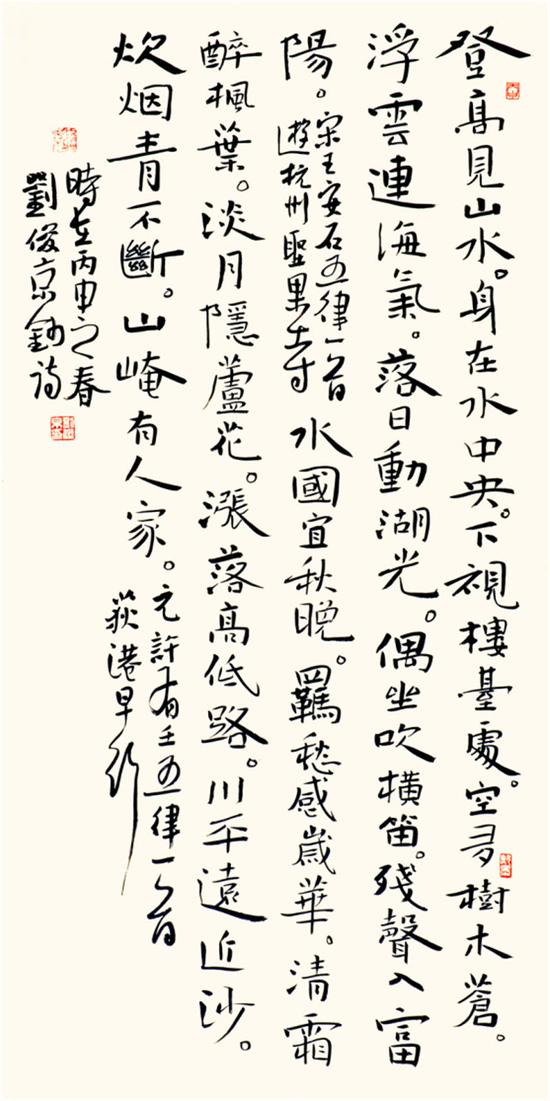 登高見山水。身在水中央。下視樓臺處。空多樹木蒼。
浮雲連海氣。落日動湖光。偶坐吹横笛。殘聲入富
陽。
宋王安石五律一首
遊杭州聖果寺
水國宜秋晚。羈愁感歲華。清霜
醉楓葉。淡月隱蘆花。漲落高低路。川平遠近沙。
炊烟青不斷。山崦有人家。
元許有壬五律一首
荻港早行
時在丙申之春
劉俊京鈔詩